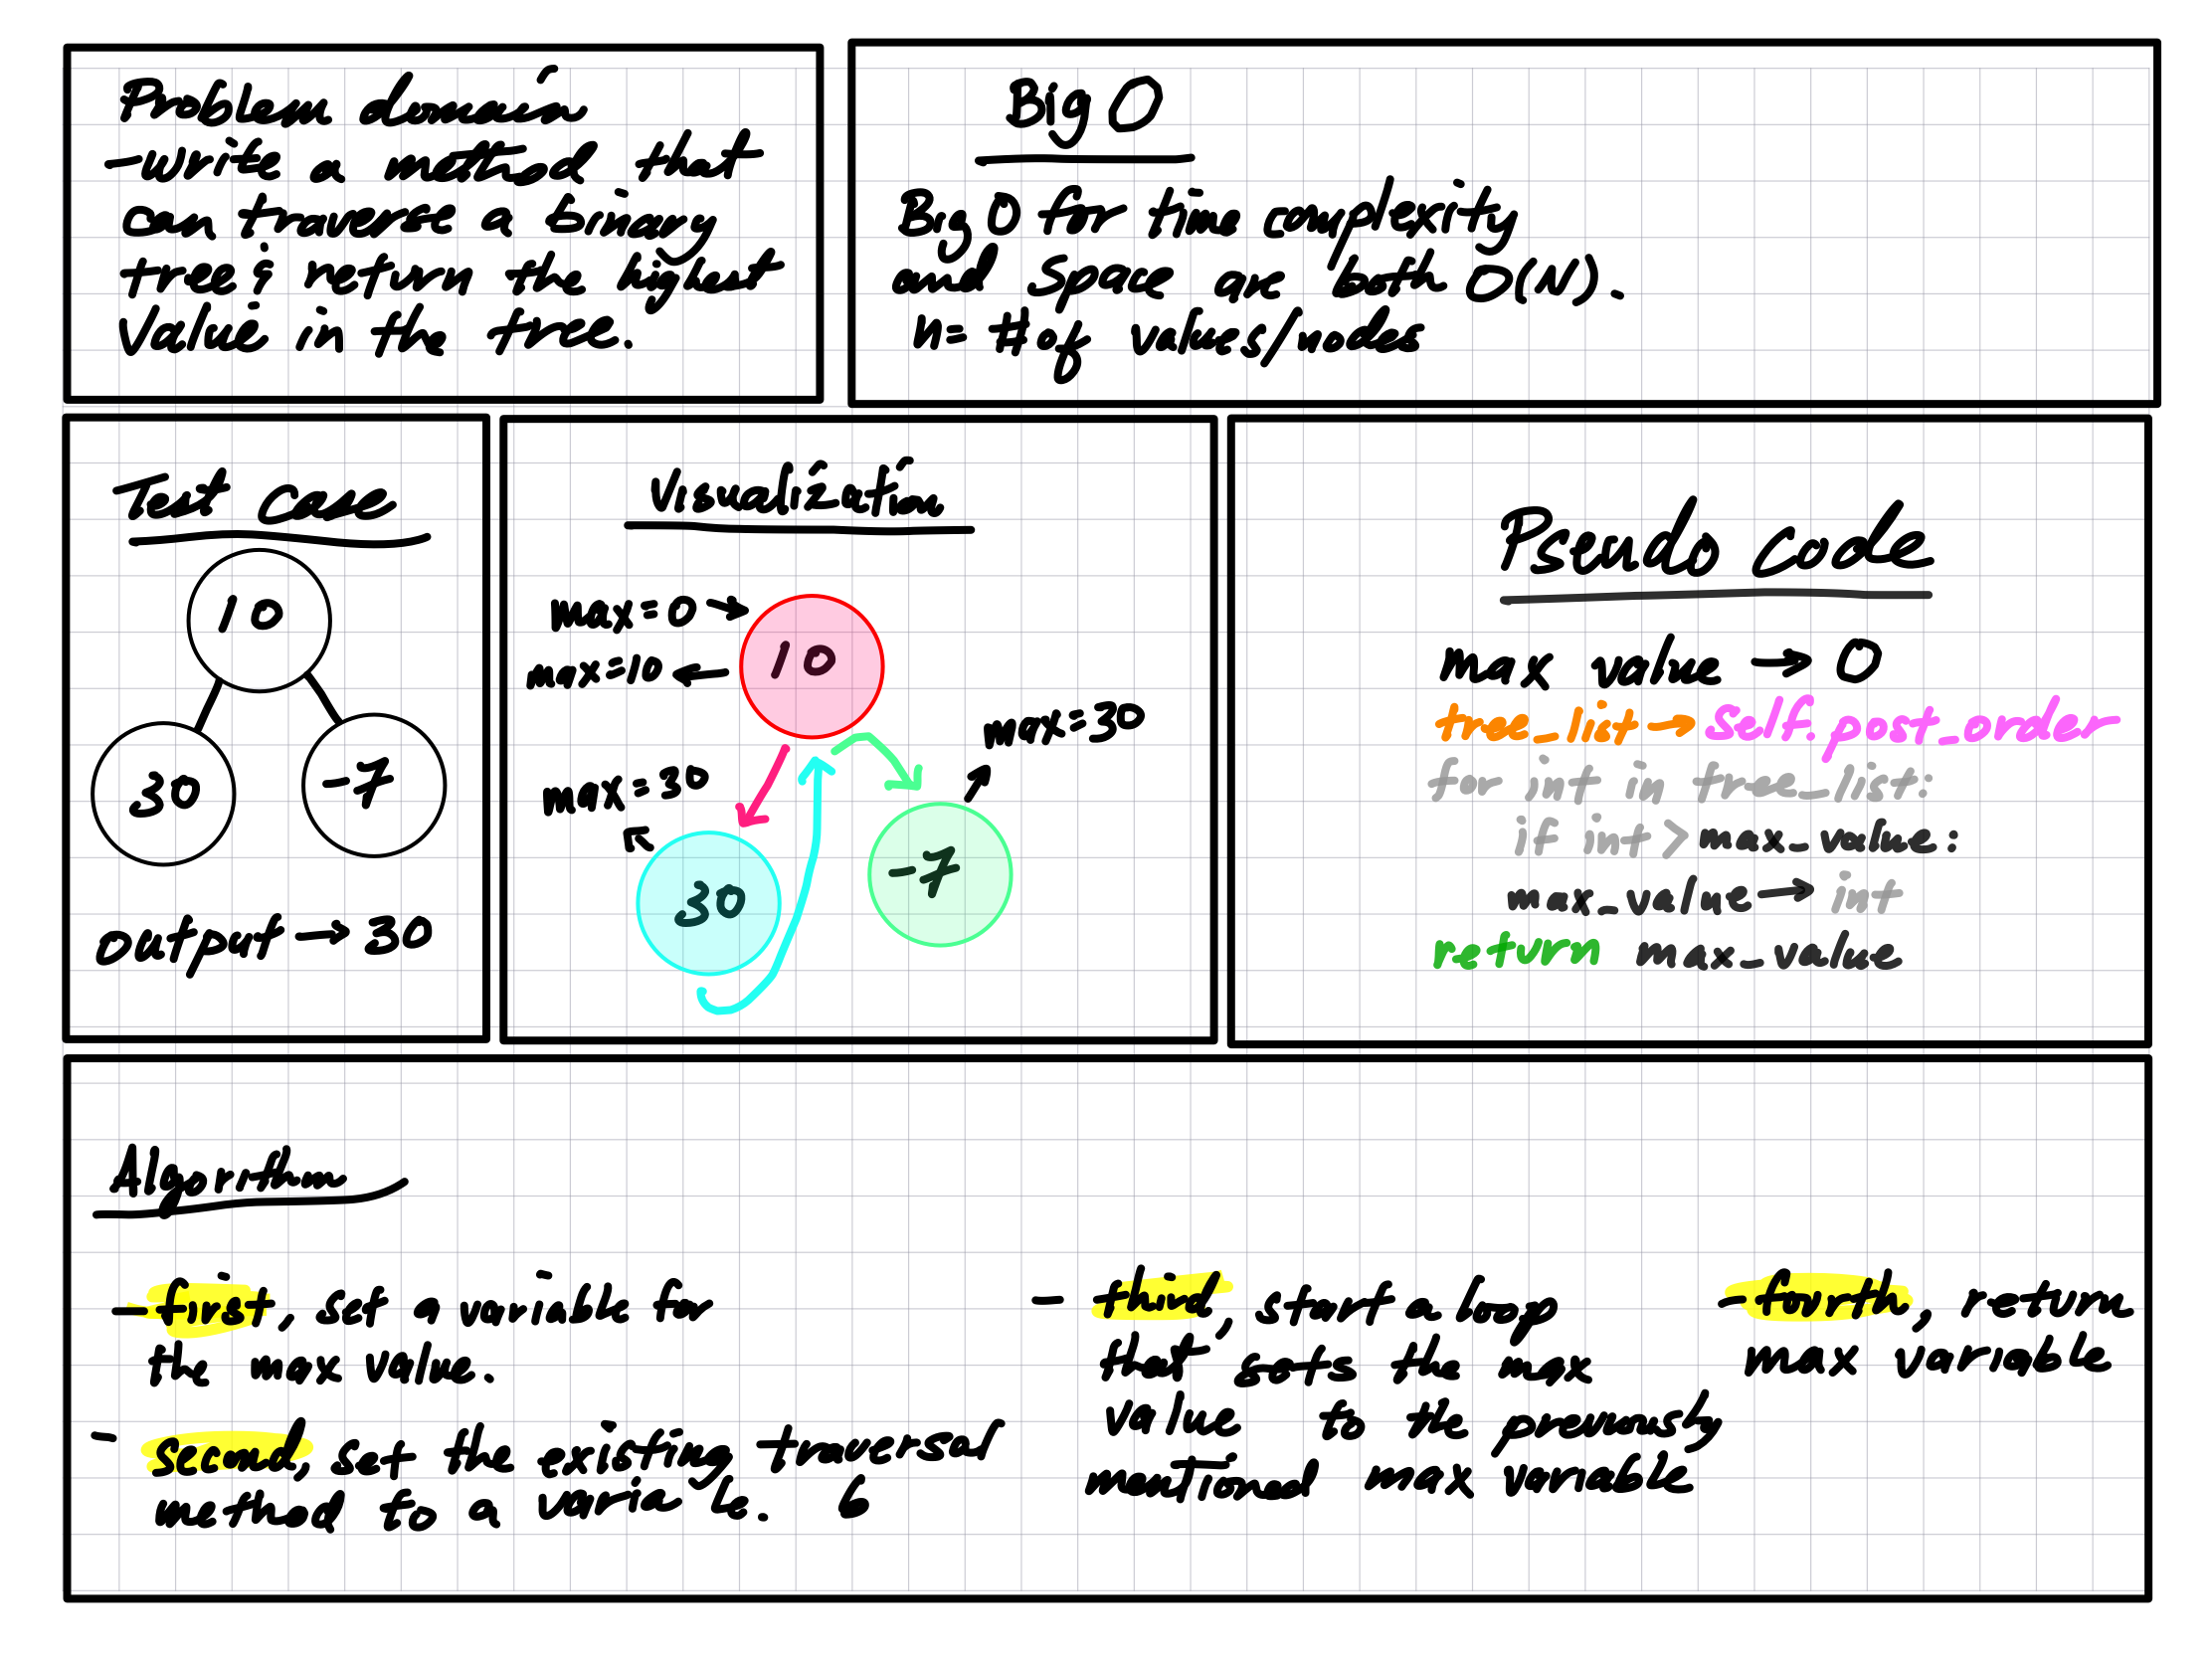 Problem domain
-write a method that
can traverse a binary
tree & return the highest
Value in the tree.
Big O
Big O for time complexity
and space are both O(N).
n= # of values/nodes
Test Case
10
30
-7
output → 30
Visualization
max=0 →
max=10 ←
10
max=30
max=30
30
-7
Pseudo code
max value → 0
tree_list → self.post_order
for int in tree_list:
if int > max_value:
max_value → int
return max_value
Algorithm
- first, set a variable for
the max value.
- second, set the existing traversal
method to a varia le. b
- third, start a loop
that sets the max
value to the previously
mentioned max variable
- fourth, return
max variable